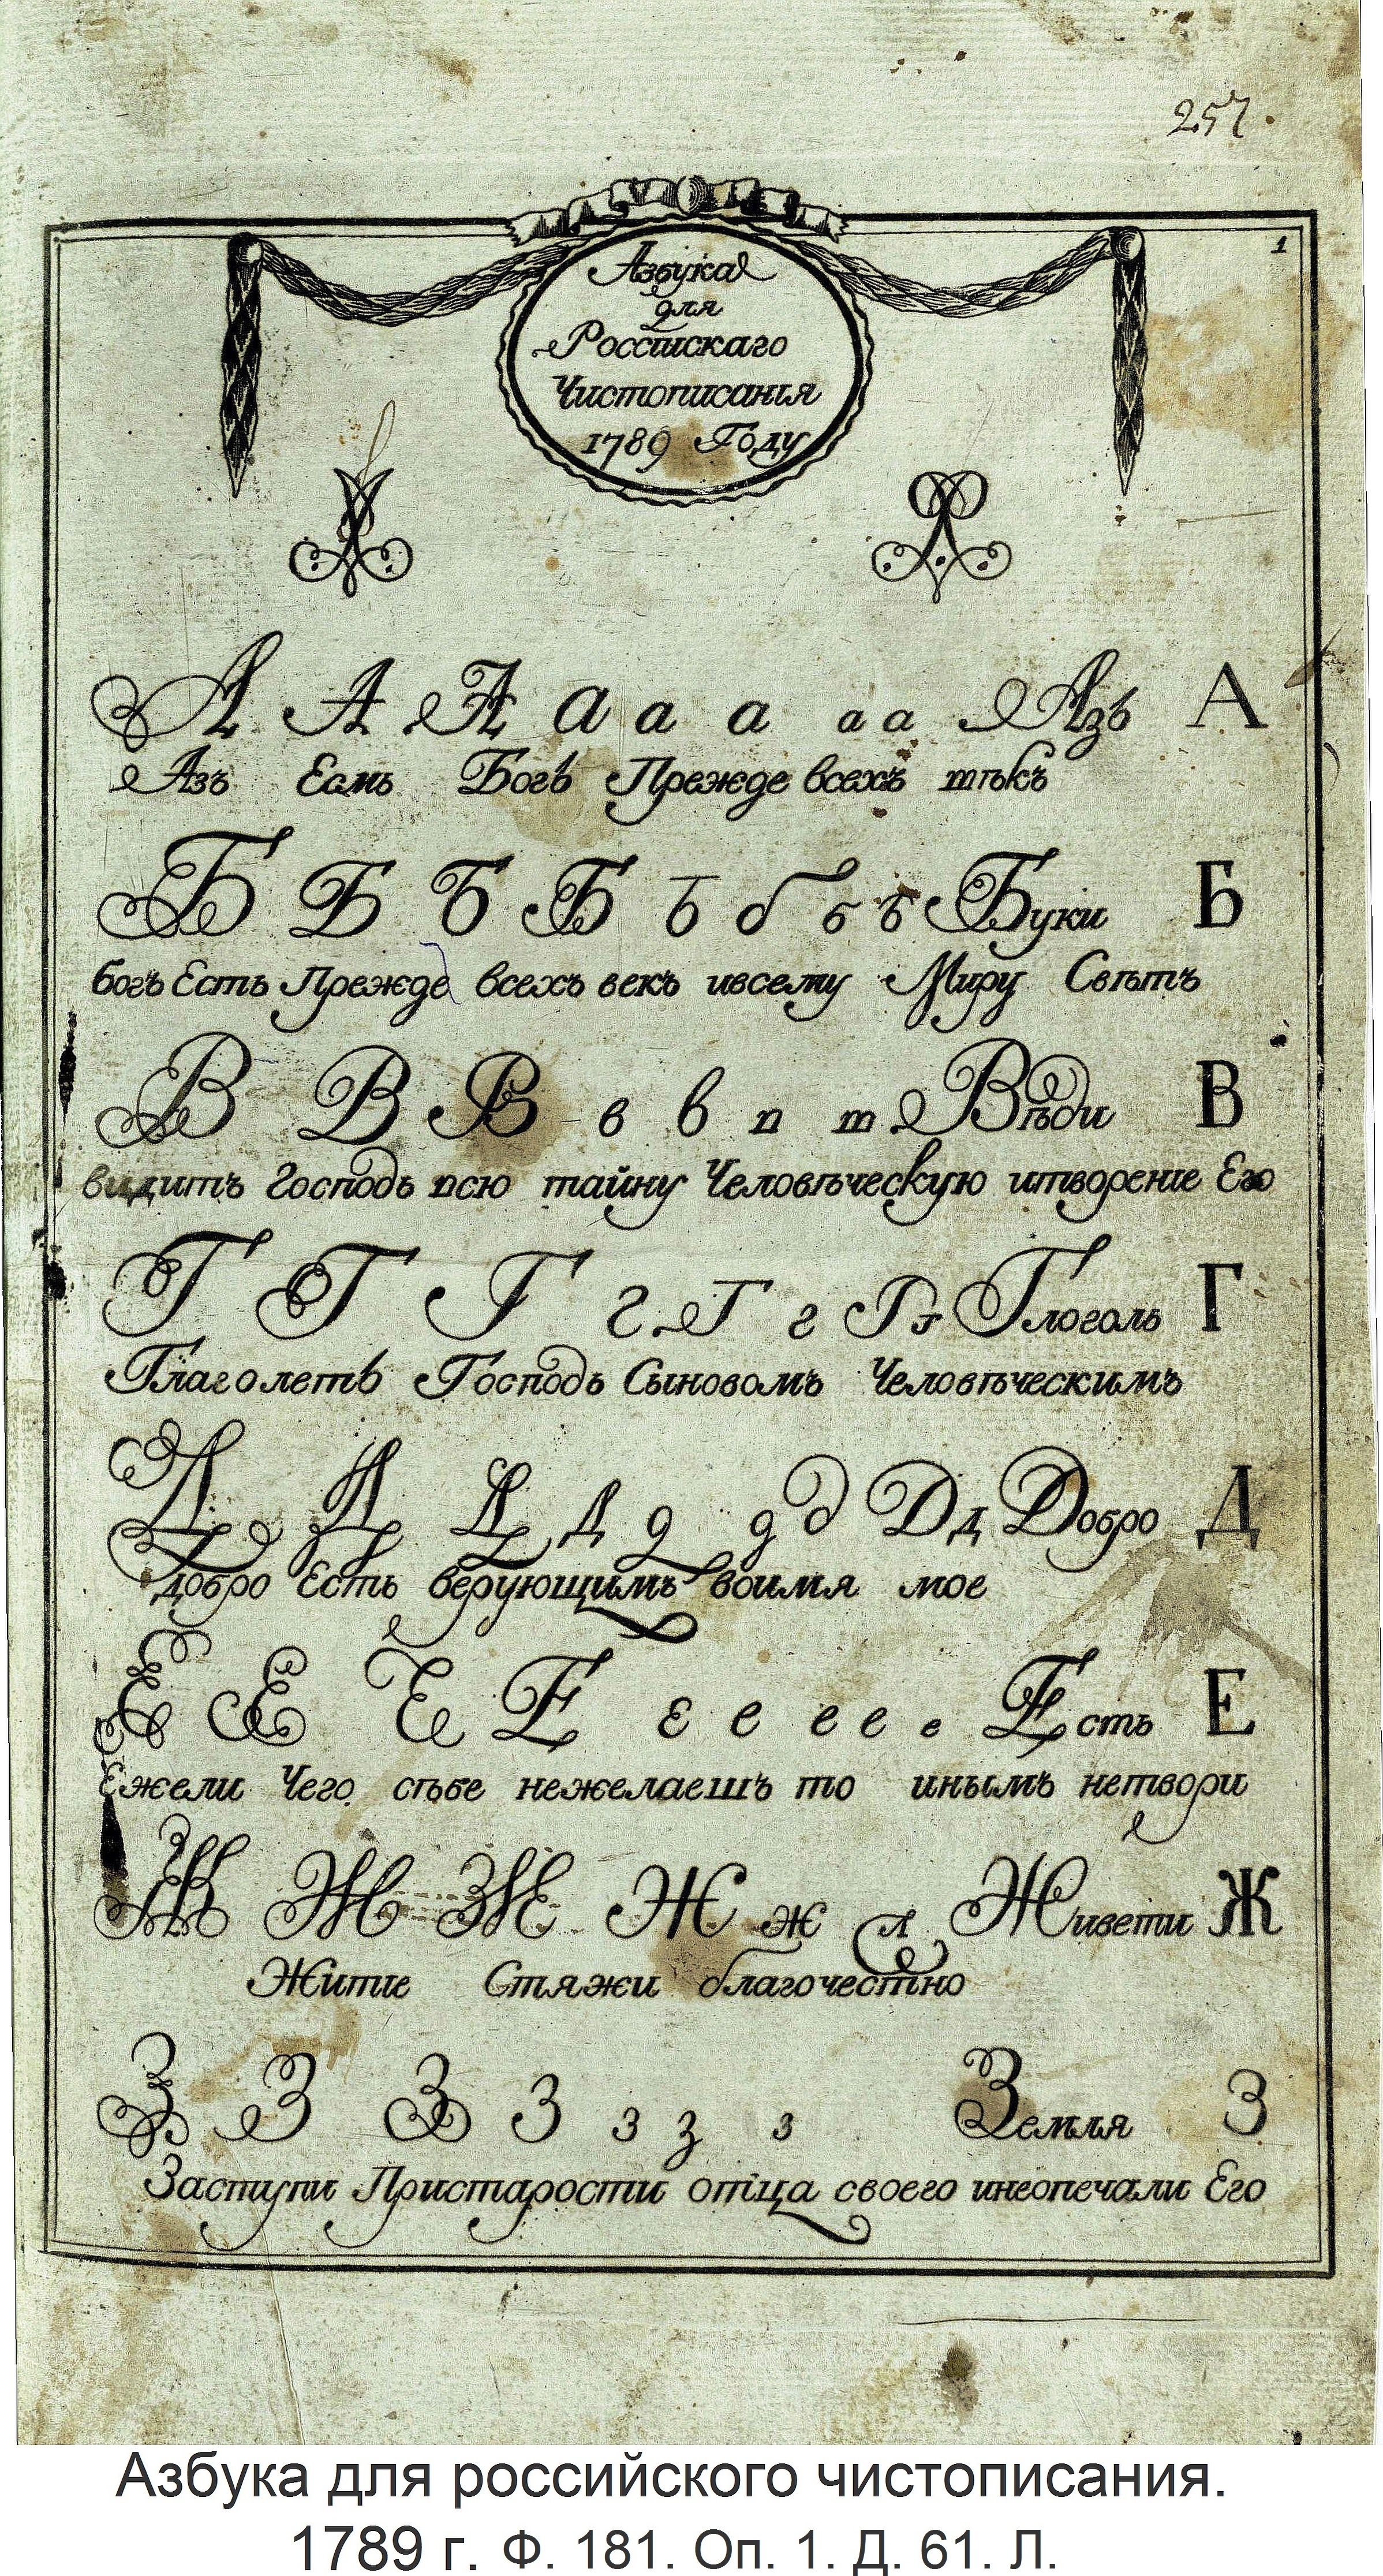 257.
1
Азбука
для
Россїискаго
Чистописанїя
1789 Году
А А А а а а а а Азъ А
Азъ Есмь Богъ Прежде всехъ вѣкъ
Б Б Б Б Б б б б Буки Б
богъ Есть Прежде всехъ векъ ивсему Миру Свѣтъ
В В В в в в в Вѣди В
видитъ Господь всю тайну Человѣческую итворенїе Его
Г Г Г г Г г Г г Глоголь Г
Глаголетъ Господь Сыновомъ Человѣческимъ
Д Д Д д д д д Д д Добро Д
добро Есть верующимъ воимя мое
Е Е Е Е е е е е е Есть Е
Ежели Чего сѣбе нежелаешъ то инымъ нетвори
Ж Ж Ж Ж ж Живети Ж
Житїе Стяжи благочестно
З З З З з з з Земля З
Заступи Пристарости отца своего инеопечали Его
Азбука для российского чистописания.
1789 г. Ф. 181. Оп. 1. Д. 61. Л.